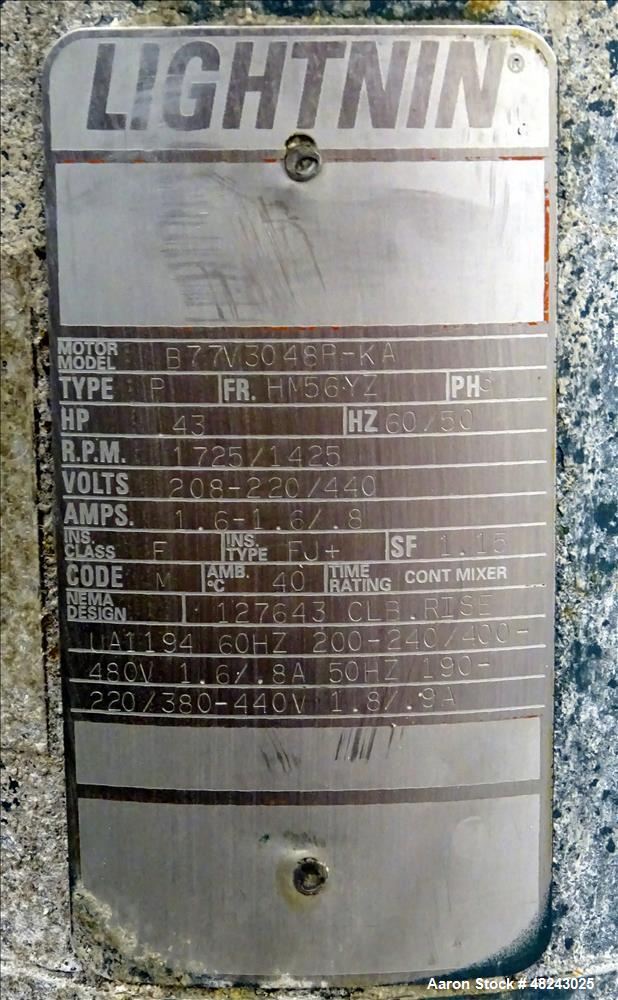 LIGHTNIN®
MOTOR MODEL B77V3048P-KA
TYPE P FR. HM56YZ PH
HP 43 HZ 60/50
R.P.M. 1725/1425
VOLTS 208-220/440
AMPS. 1.6-1.6/.8
INS. CLASS F INS. TYPE FJ+ SF 1.15
CODE M AMB. °C 40 TIME RATING CONT MIXER
NEMA DESIGN 127643 CLB.RISE
UA1194 60HZ 200-240/400-
480V 1.6/.8A 50HZ/190-
220/380-440V 1.8/.9A
Aaron Stock # 48243025